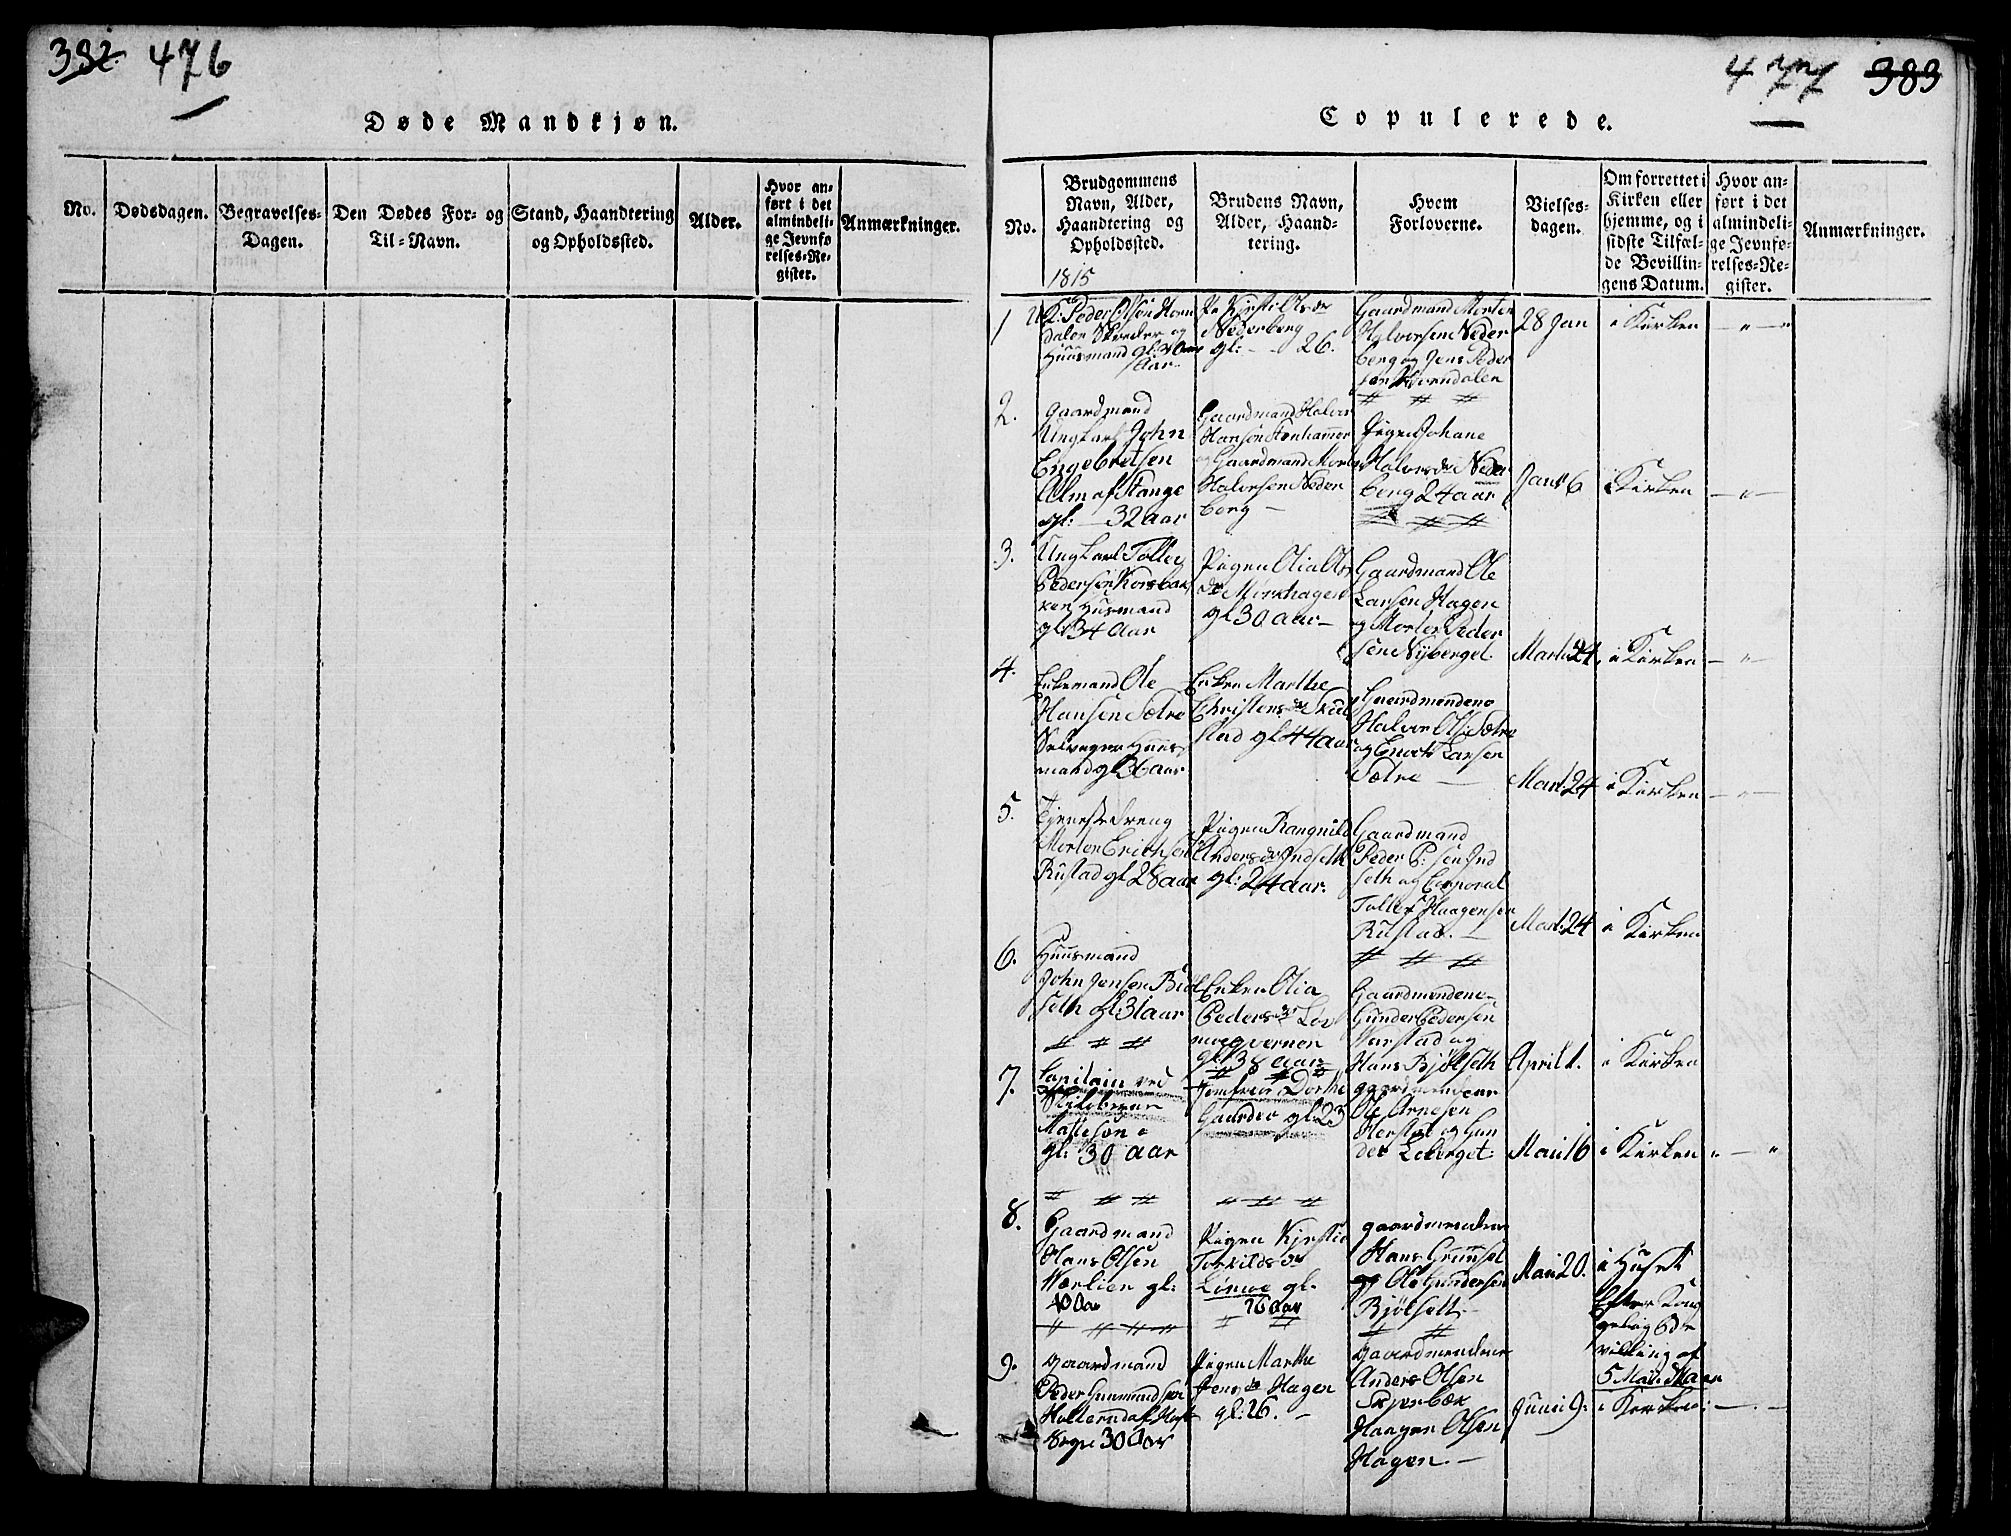 382 476
Døde Mandkjøn.
No.
Dødsdagen.
Begravelses-
Dagen.
Den Dødes For- og
Til-Navn.
Stand, Haandtering
og Opholdssted.
Alder.
Hvor an-
ført i det
almindeli-
ge Jevnfø
relses-Re-
gister.
Anmærkninger.
477 383
Copulerede.
No.
Brudgommens
Navn, Alder,
Haandtering og
Opholdssted.
Brudens Navn,
Alder, Haand-
tering.
Hvem
Forloverne.
Vielses-
dagen.
Om forrettet i
Kirken eller
hjemme, og i
sidste Tilfæl-
de Bevillin-
gens Datum.
Hvor an-
ført i det
almindeli-
ge Jevnfø-
relses-Re-
gister.
Anmærkninger.
1815
1
Peder Olsen Horn
dalen Skræder og
Huusmand gl: 30
Aar
Kirsti Olsdr
Nederberg
gl: - - 26.
Gaardmand Morten
Halvorsen Neder
berg og Jens Peder
sen Horndalen
28 Jan
i Kirken
2.
Gaardmand
Ungkarl John
Engebretsen
Alm af Stange
gl: - 32 aar
Gaardmand Halvor
Hansen Stenhammer
og Gaardmand Morten
Halvorsen Neder
berg -
Pigen Johane
Halvorsdr Neder
berg 24 aar
Jan: 6
i Kirken
3.
Ungkarl Tollev
Pedersen Korsbak
ken Husmand
gl: 34 Aar
Pigen Olia Ols
dr Mörkhagen
gl 30 aar -
Gaardmand Ole
Larsen Hagen
og Morten Peder
sen Nyberget.
Marti 24.
i Kirken
4.
Enkemand Ole
Hansen Sætre
Selveger Huus
mand gl 36 aar
Enken Marthe
Christensdr Skul
stad gl 44 aar
Gaardmændene
Halvor Ols: Sætre
og Enock Larsen
Sætre -
Mart: 24
i Kirken
5.
Tjenestedreng
Morten Erichsen
Rustad gl 28 aar
Pigen Rangnild
Andersdr Indseth
gl: 24 aar.
Gaardmand
Peder P:sen Ind
seth og Corporal
Tollef Haagensen
Rustad. -
Mart: 24
i Kirken
6.
Huusmand
John Jensen Biöl
seth gl: 31 aar
Enken Olia
Pedersdr Löv
gl: 38 aar
Gaardmændene
Gunder Pedersen
Harstad og
Hans Bjölseth
April 1.
i Kirken
7.
Capitain ved
Matteson
gl: 30 aar
Jomfrue Dorthe
Gaarder gl: 23
gaardmændene
Ole Arnesen
Herstad og Gun
der Leberget.
Mai 16
i Kirken
8.
Gaardmand
Hans Olsen
Wærlien gl:
40 Aar
Pigen Kjersti
Torkildsdr
Lönwe gl.
26 aar
gaardmændene
Hans Grunset
og Ole Gundersen
Bjölseth.
Mai 20.
i Huset
Efter Kong
gelig Be
villing af
5 Mai
9.
gaardmand
Peder Gunmundsen
30 Aar
Pigen Marthe
Jensdr Hagen
gl: 26. -
Gaardmændene
Anders Olsen
Skjerbæk
Haagen Olsen
Hagen. -
Juni 9.
i Kirken.